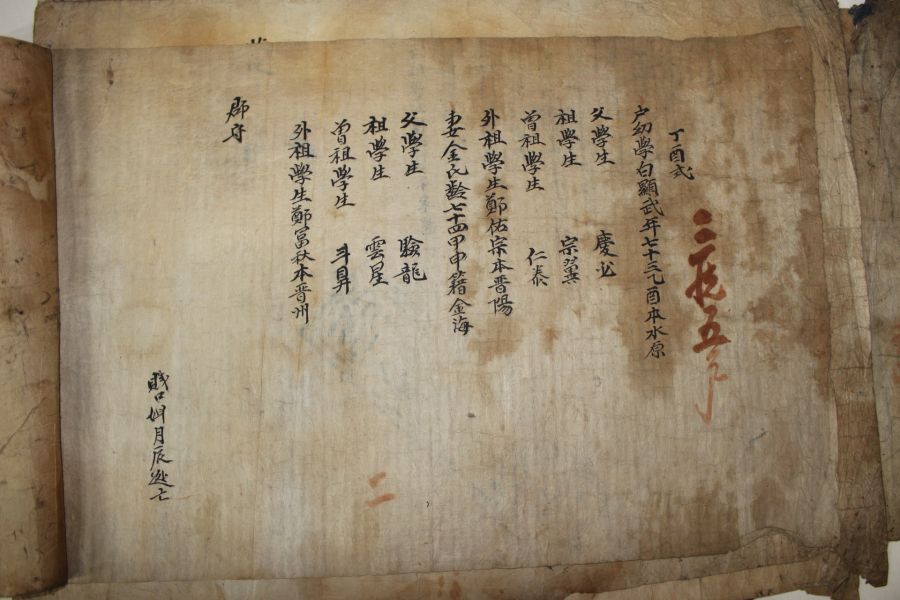 丁酉式
戶幼學白顯武年七十三乙酉本水原
父學生 慶
祖學生 宗翼
曾祖學生 仁泰
外祖學生鄭佑宗本晋陽
妻金氏齡七十四甲申籍金海
父學生 龍
祖學生 雲星
曾祖學生 斗昇
外祖學生鄭富秋本晋州
郡守
月辰逃亡
二